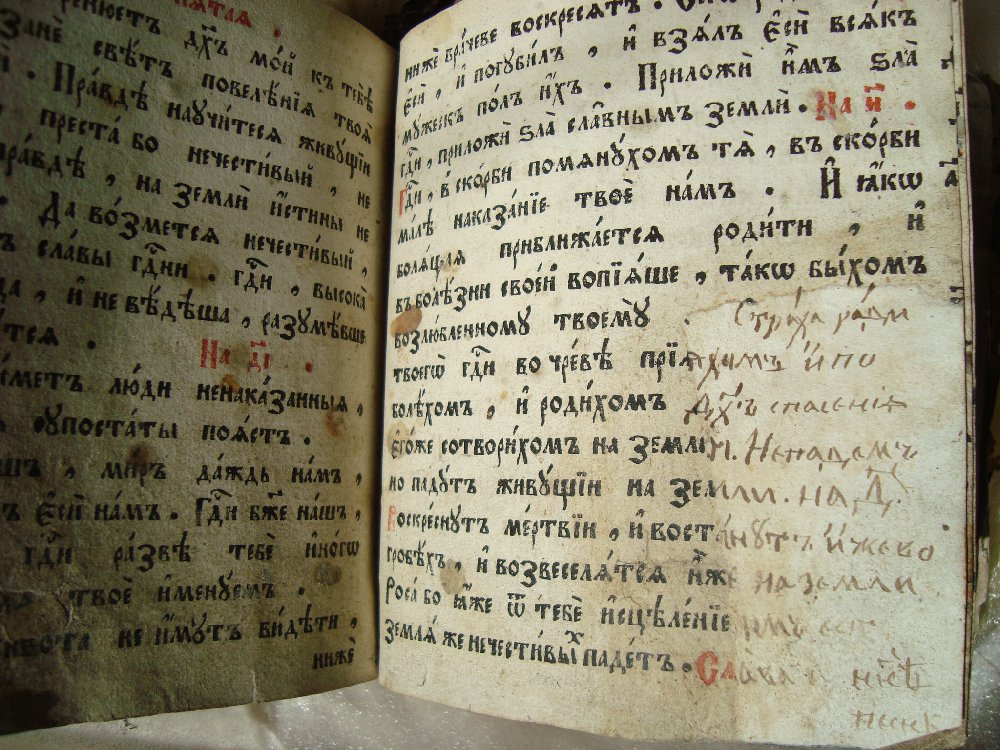 ꙗтлая
ренюетъ дх҃ъ мо́й къ тебѣ
занѐ свѣ́тъ повелѣ́нїя твоя̀
Пра́вдѣ научи́теся живу́щїи
преста́ бо нечести́вый , не
пра́вдѣ , на землѝ и҆́стины не
Да во́змется нечести́вый ,
сла́вы гд҇ни . гд҇и , высока̀
и҆ не вѣ́дѣша , разумѣ́вше
тся .
На д҃і .
е́млетъ лю́ди ненака́занныя ,
супоста́ты поя́стъ .
ми́ръ да́ждь на́мъ ,
е҆сѝ на́мъ . Гд҇и бж҃е на́шъ ,
гд҇и ра́звѣ тебѐ и҆но́гѡ
твоѐ и҆мену́емъ .
живота̀ не и҆́мутъ ви́дѣти ,
нижѐ
нижѐ вра́чеве воскреся́тъ .
е҆сѝ , и҆ погуби́лъ , и҆ взя́лъ е҆сѝ вся́къ
му́жескъ по́лъ и҆́хъ . Приложѝ и҆̀мъ ѕла̀
гд҇и , приложѝ ѕла̀ сла́внымъ землѝ . На и҃ .
Гд҇и , в ско́рби помяну́хомъ тя̀ , въ ско́рби
ма́лѣ наказа́нїе твоѐ на́мъ . И҆ ꙗ҆́кѡ
боля́щая приближа́ется роди́ти , и҆
въ болѣ́зни свое́й вопїя́ше , та́кѡ бы́хомъ
возлю́бленному твоему̀ . Стра́ха ра́ди
твоегѡ̀ гд҇и во чре́вѣ прїя́хомъ и҆ по
болѣ́хомъ , и҆ роди́хомъ дх҃ъ спасенїя
е҆го́же сотвори́хомъ на землѝ. Не паде́мъ
но паду́тъ живу́щїи на землѝ. на д҃.
Воскре́снутъ ме́ртвїи , и҆ воста́нутъ и҆же во
гробѣ́хъ , и҆ возвеселя́тся и҆̀же на земли
Роса́ бо ꙗ҆́же ѿ тебѐ и҆сцѣле́нїе имъ ест
Земля́ же нечести́выхъ паде́тъ . Слава и нн҃ѣ